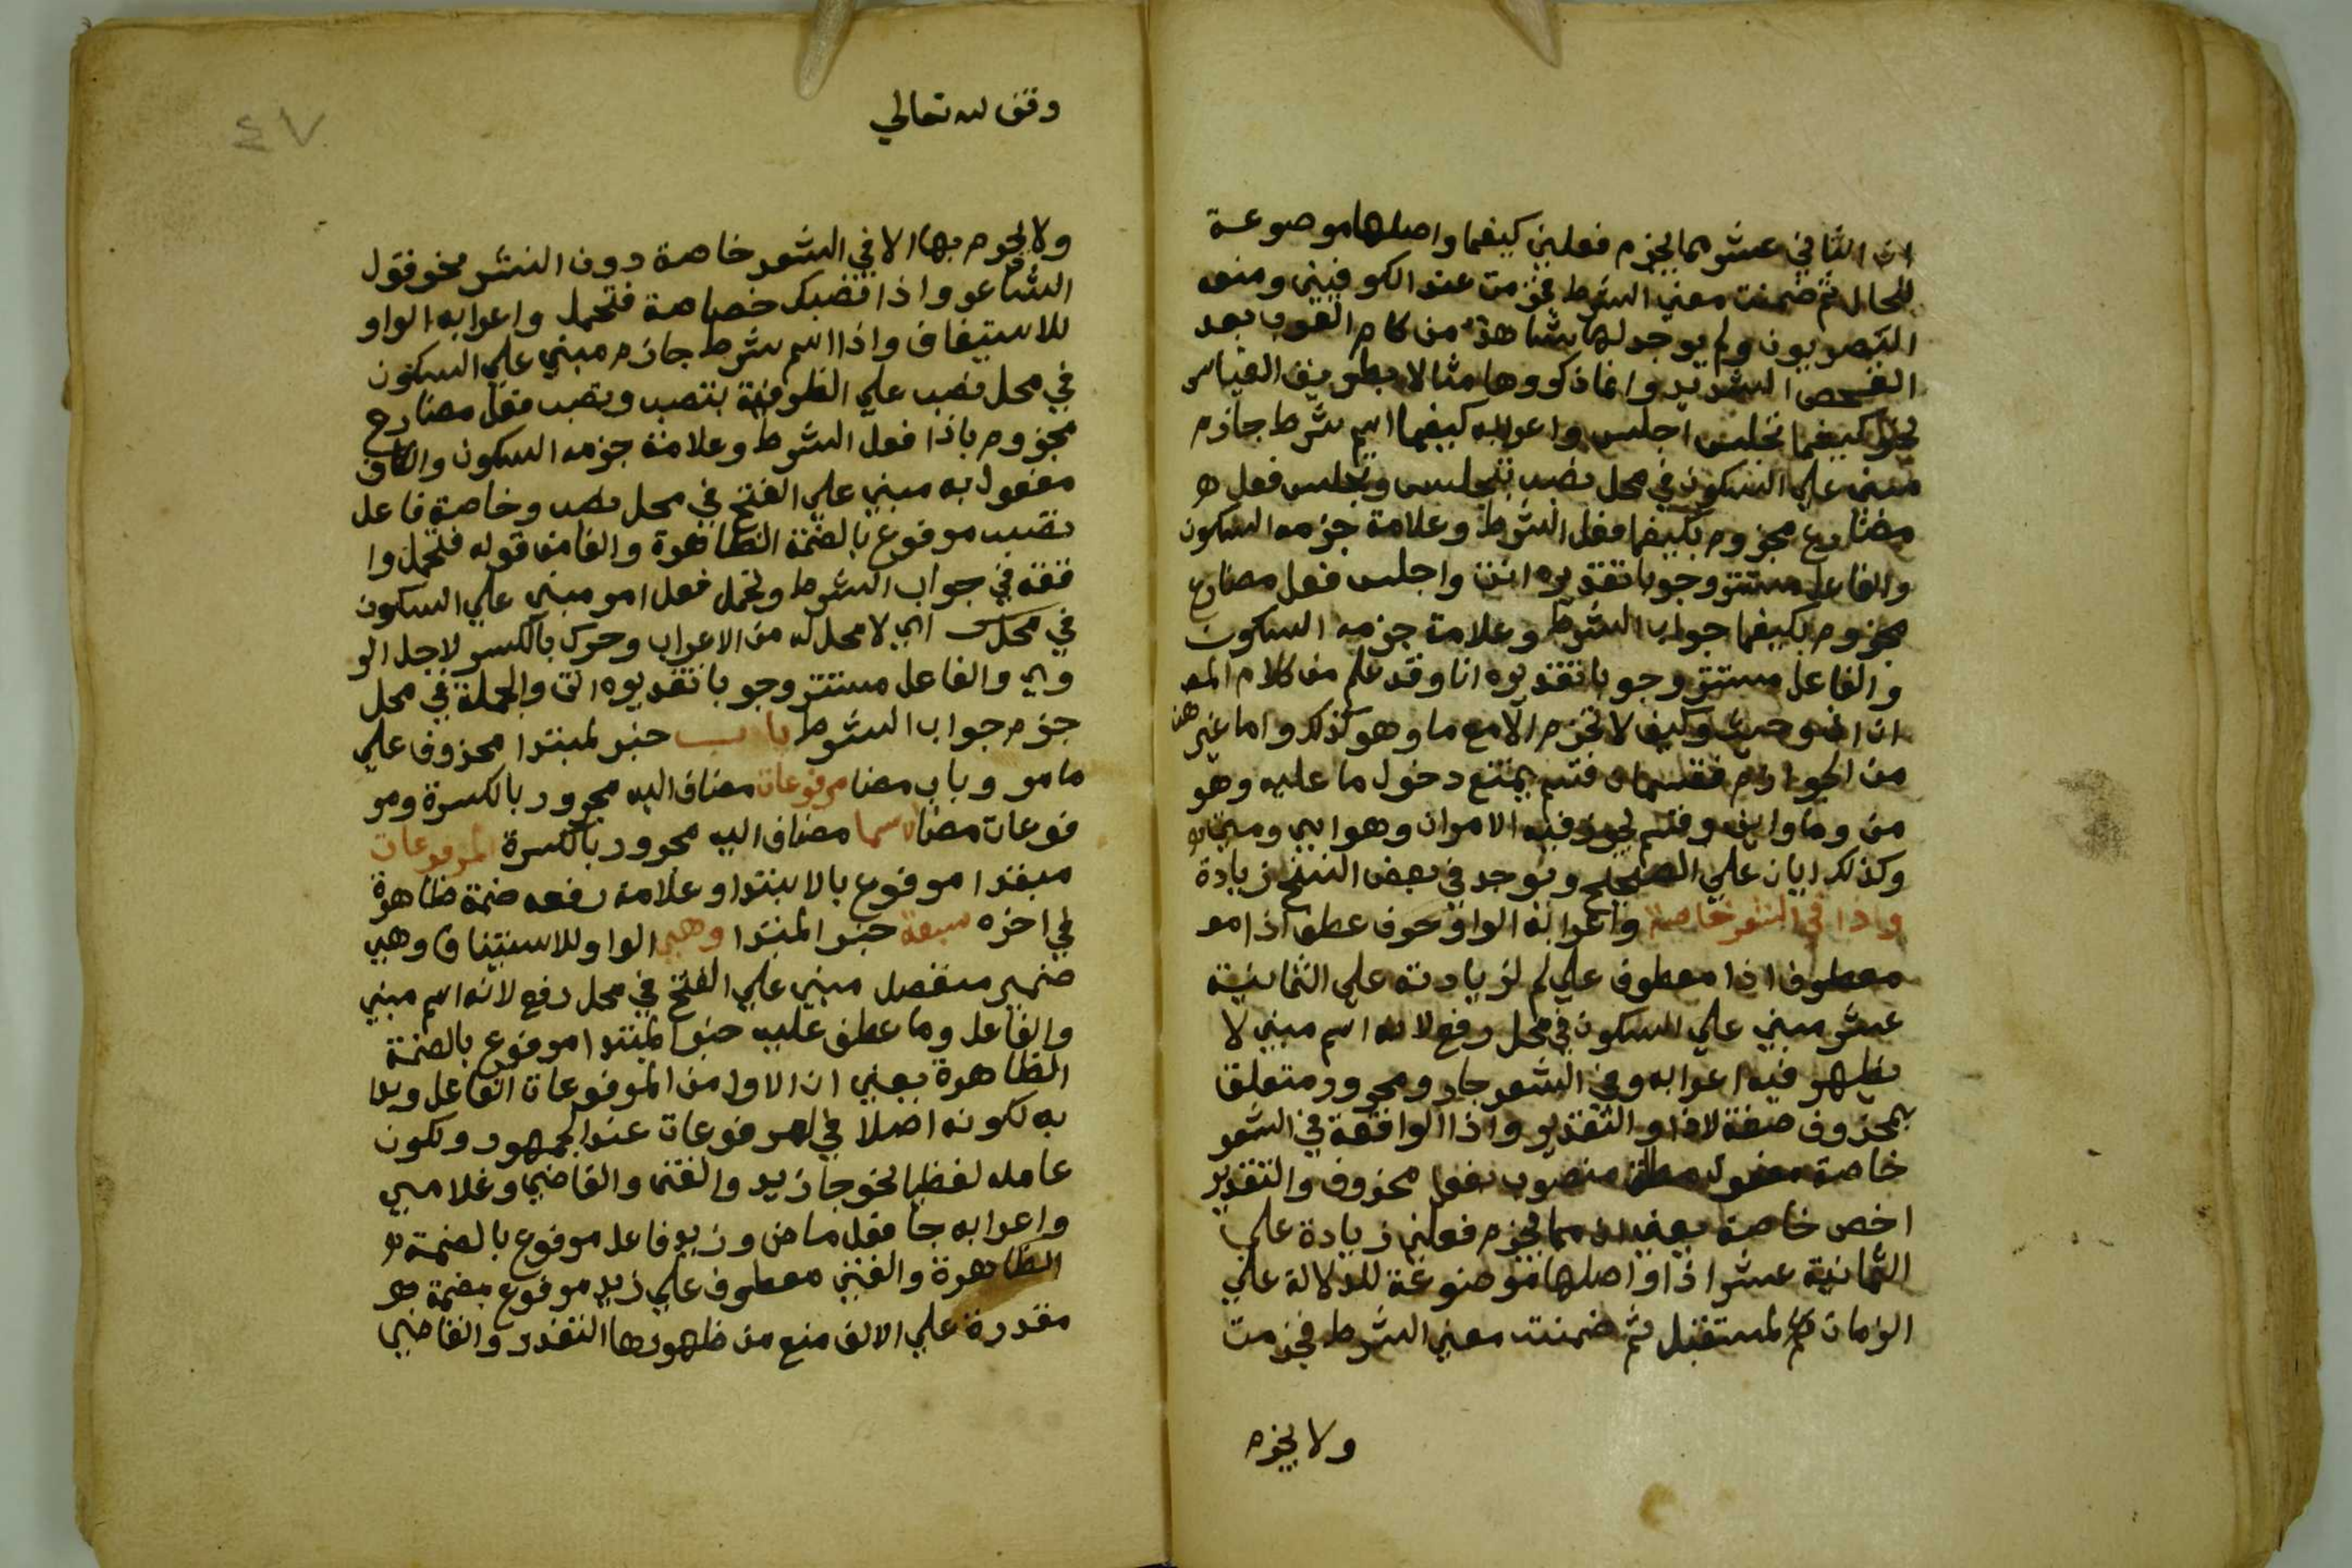 ان الثاني عشر مما يجزم فعلين كيفما واصلها موضوعة
للحال ثم ضمنت معني الشرط فجزمت عند الكوفيين ومنعه
البصريون ولم يوجد لها شاهد من كلام العرب بعد
الفحص الشديد وانما ذكروها مثالا بطريق القياس
نحو كيفما تجلس اجلس واعرابه كيفما اسم شرط جازم
مبني علي السكون في محل نصب بتجلس وتجلس فعل
مضارع مجزوم بكيفما فعل الشرط وعلامة جزمه السكون
والفاعل مستتر وجوبا تقديره انت واجلس فعل مضارع
مجزوم بكيفما جواب الشرط وعلامة جزمه السكون
والفاعل مستتر وجوبا تقديره انا وقد علم من كلام المص
ان اذ وحيث وكيف لا تجزم الا مع ما وهو كذلك واما غير هذه
من الجوازم فقسمان قسم يمتنع دخول ما عليه وهو
من وما واني وقسم يجوز فيه الامران وهو اي ومتي
وكذلك ايان علي الصحيح ويوجد في بعض النسخ زيادة
واذا في الشعر خاصة واعرابه الواو حرف عطف اذا مو
معطوف اذا معطوف علي لم لزيادته علي الثمانية
عشر مبني علي السكون في محل رفع لانه اسم مبني لا
يظهر فيه اعرابه وفي الشعر جار ومجرور متعلق
بمحذوف صفة لاذا والتقدير واذا الواقعة في الشعر
خاصة مفعول مطلق منصوب بفعل محذوف والتقدير
اخص خاصة يعني ان مما يجزم فعلين زيادة علي
الثمانية عشر اذا واصلها موضوعة للدلالة علي
الزمان المستقبل ثم ضمنت معني الشرط فجزمت
ولا يجزم
وقف لله تعالي
٤٧
ولا يجزم بها الا في الشعر خاصة دون النثر نحو قول
الشاعر واذا تصبك خصاصة فتحمل واعرابه الواو
للاستيناف واذا اسم شرط جازم مبني علي السكون
في محل نصب علي الظرفية بتصب وتصب فعل مضارع
مجزوم باذا فعل الشرط وعلامة جزمه السكون والكاف
مفعول به مبني علي الفتح في محل نصب وخاصة فاعل
تصب مرفوع بالضمة الظاهرة والفا من قوله فتحمل وا
قعة في جواب الشرط وتحمل فعل امر مبني علي السكون
في محل اي لا محل له من الاعراب وحرك بالكسر لاجل الر
وي والفاعل مستتر وجوبا تقديره انت والجملة في محل
جزم جواب الشرط باب خبر لمبتدا محذوف علي
ما مر وباب مضا مرفوعات مضاف اليه مجرور بالكسرة ومر
فوعات مضا الاسما مضاف اليه مجرور بالكسرة المرفوعات
مبتدا مرفوع بالابتدا وعلامة رفعه ضمة ظاهرة
في اخره سبعة خبر المبتدا وهي الواو للاستيناف وهي
ضمير منفصل مبني علي الفتح في محل رفع لانه اسم مبني
والفاعل وما عطف عليه خبر المبتدا مرفوع بالضمة
الظاهرة يعني ان الاول من المرفوعات الفاعل وبدا
به لكونه اصلا في المرفوعات عند الجمهور ولكون
عامله لفظيا نحو جا زيد والفتي والقاضي وغلامي
واعرابه جا فعل ماض وزيد فاعل مرفوع بالضمة
الظاهرة والفتي معطوف علي زيد مرفوع بضمة
مقدرة علي الالف منع من ظهورها التعذر والقاضي